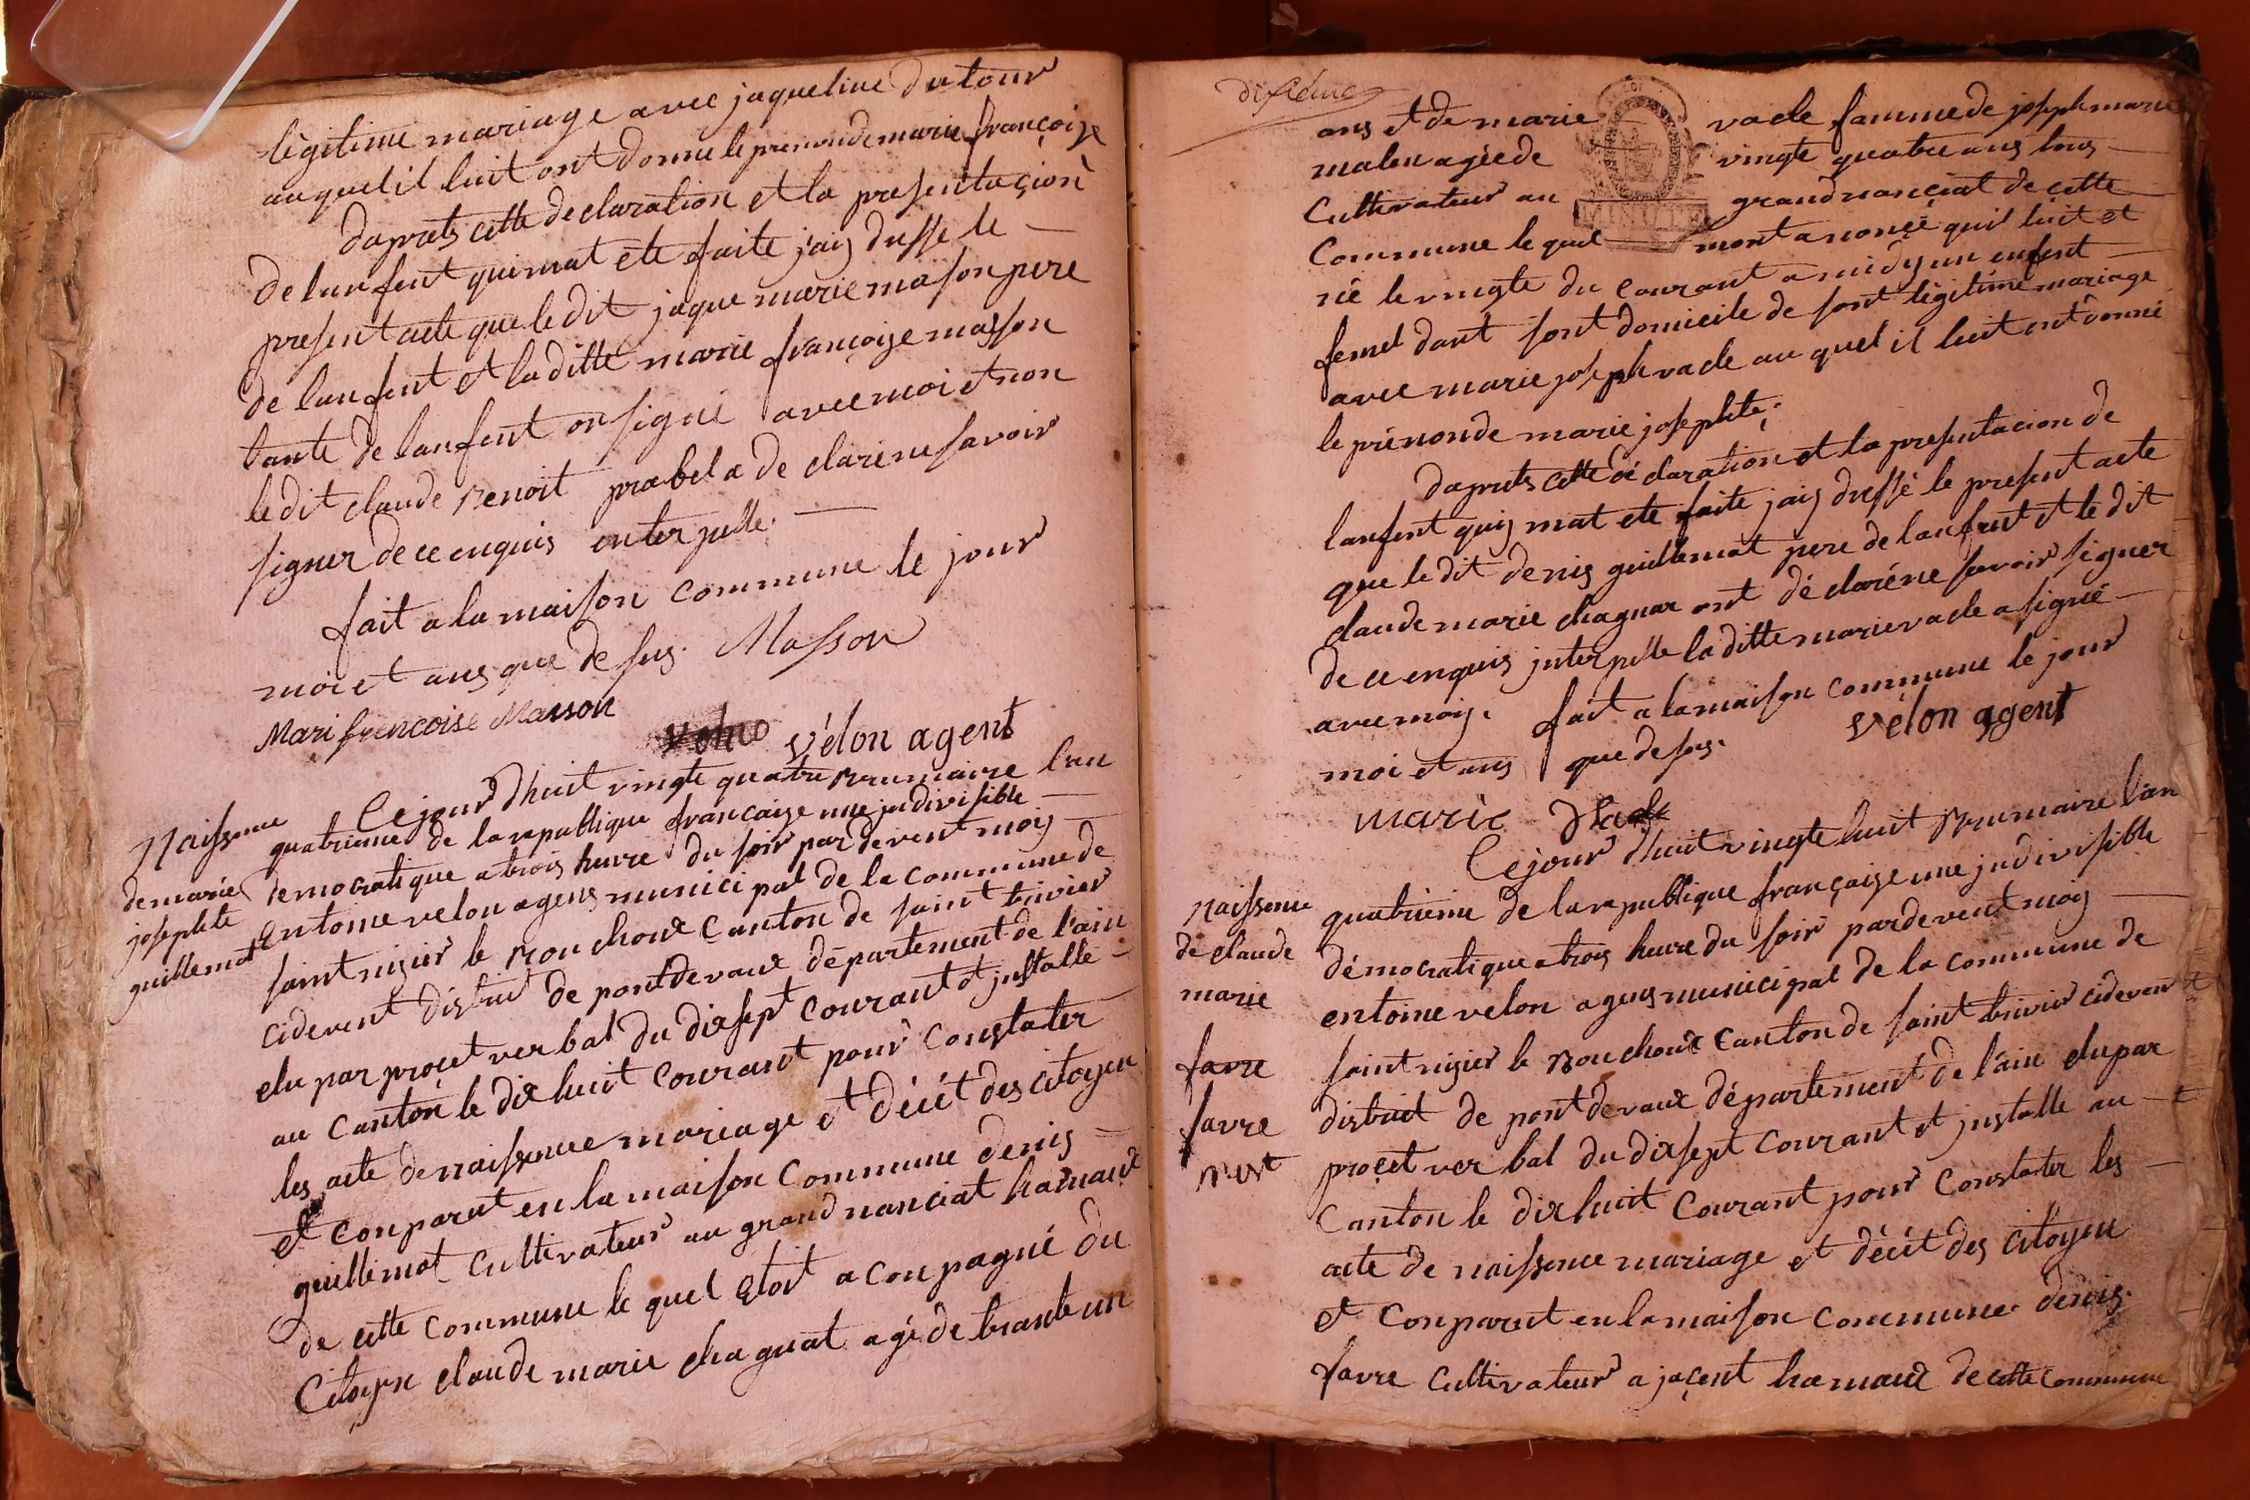 légitime mariage avec jaqueline dutour
auquel il luit ont donné le prenon de marie françoize
daprets cette declaration et la presentaçion
de lanfent qui mat été faite j'aiy dressé le
present acte que le dit jaque marie mason pere
de lanfent et la ditte marie françoize masson
tante de lanfent on signé avec moi et non
le dit claude Benoit prabel a de claréne savoir
signer de ce enquis enterpelle.
fait a la maison commune le jour
moi et ans que de sus. Masson
Mari francoise Masson
vélon agent
Naissence
de marie
josephte
guillemot
Cejourdhuit vingte quatre Brumaire l'an
quatrieme de la republique françaize une jndivisible
démocratique a trois heure du soir pardevent moiy
entoine velon agens municipal de la commune de
saint nizier le Bouchoux Canton de saint trivier
cidevent district de pontdevaux département de l'ain
elu par proçet verbal du dixsept courant et jnstallé
au canton le dix huit courant pour constater
les acte de naissence mariage et décét des citoyen
et conparut en la maison commune denis
guillemot cultivateur au grand nanciat hamaux
de cette commune le quel etoit aconpagné du
Citoyen claude marie chagnat agé de trante un
ans et de marie vacle famme de joseph marie
malen agée de vingte quatre ans tous
Cultivateur au grand nanciat de cette
Commune le quel mont anoncé qui luit et
né le vingte du courant a midy un enfent
femel dant sont domicile de sont légitime mariage
avec marie joseph vacle au quel il luit ont donné
le prénon de marie josephte.
daprets cette dé claration et la presentacion de
lanfent quiy mat eté faite jaiy dressé le present acte
que le dit denis guillemat pere de lanfent et le dit
claude marie chagnar ont dé claréne savoir signer
de ce enquis jnterpelle la ditte marie vacle a signé
avec moiy. fait a la maison commune le jour
moi et ans que de sus.
vélon agent
marie Vacle
Naissence
de claude
marie
favre
favre
Cejourdhuit vingte huit Brumaire l'an
quatriéme de la republique françaize une jndivisible
démocratique a trois heure du soir pardevent moiy
entoine velon agens municipal de la commune de
saint nizier le Bouchoux Canton de saint trivier cidevent
district de pontdevaux département de l'ain elu par
proçet verbal du dixsept courant et jnstallé au
Canton le dix huit courant pour constater les
acte de naissence mariage et décét des citoyen
et conparut en la maison commune denis
favre cultivateur a jaçent hamaux de cette commune